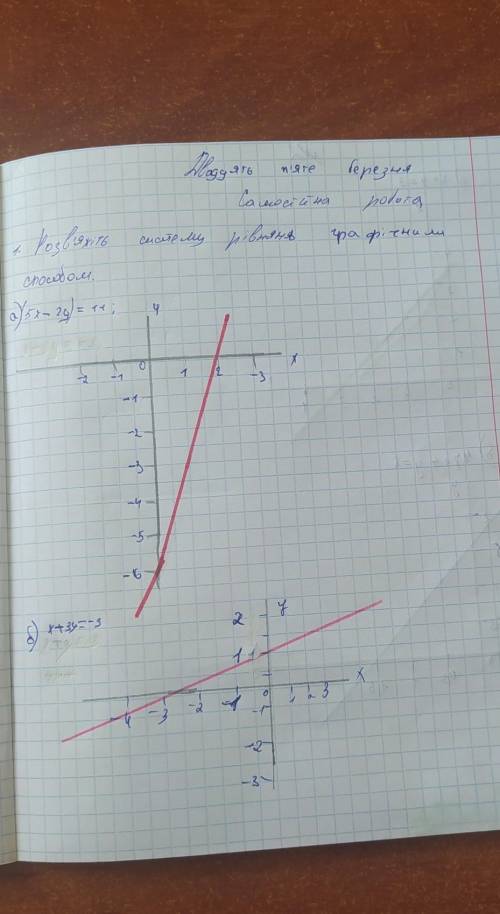 Двадцять п'яте березня
Самостійна робота
1. Розв'яжіть систему рівнянь графічним
способом.
а) 5x - 2y = 11;
y
-2 -1 0 1 2 -3 x
-1
-2
-3
-4
-5
-6
б) x+3y=-3
2 y
1 1
x
-4 -3 -2 -1 0 1 2 3
-1
-2
-3